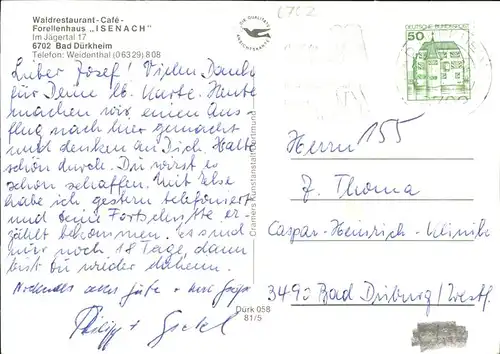 Waldrestaurant-Café-
Forellenhaus „ISENACH"
Im Jägertal 17
6702 Bad Dürkheim
Telefon: Weidenthal (06329) 808
DIE QUALITÄTS
ANSICHTSKARTE
6702
DEUTSCHE BUNDESPOST
50
Lieber Josef! Vielen Dank
für Deine lb. Karte. Heute
machen wir einen Aus-
flug nach hier gemacht
und denken an Dich. Halte
schön durch. Du wirst es
schon schaffen. Mit Else
habe ich gestern telefoniert
und Deine Fortschritte er-
zählt bekommen. Es sind
nur noch 18 Tage, dann
bist Du wieder daheim.
alles Gute +
Philipp +
Cramers Kunstanstalt Dortmund
Dürk 058
81/5
Herrn 155
J. Thoma
Caspar-Heinrich-Klinik
3490 Bad Driburg/Westf.